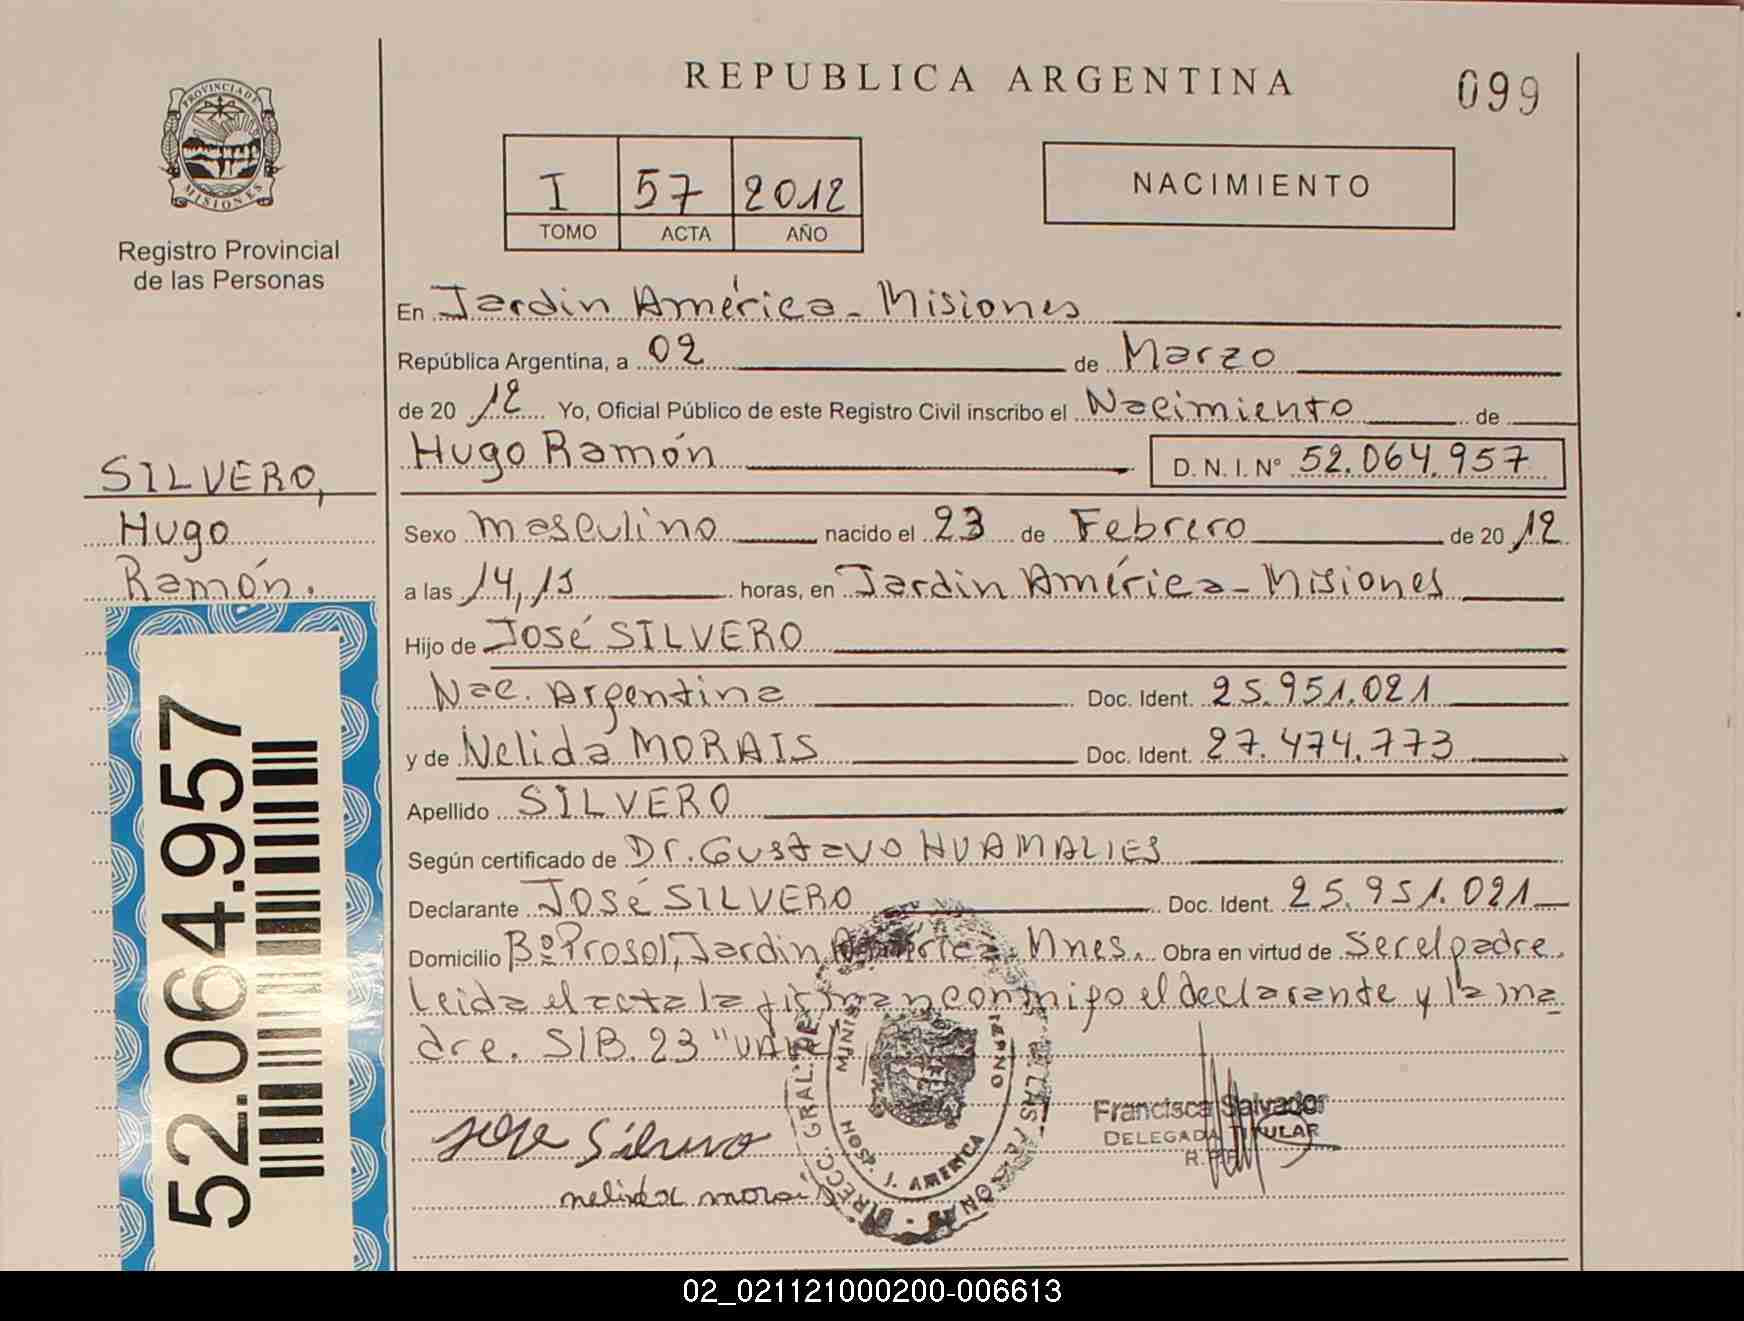 REPUBLICA ARGENTINA
099
PROVINCIA DE
MISIONES
Registro Provincial
de las Personas
I 57 2012
TOMO ACTA AÑO
NACIMIENTO
En Jardin América - Misiones
República Argentina, a 02 de Marzo
de 2012 Yo, Oficial Público de este Registro Civil inscribo el Nacimiento de
Hugo Ramón D.N.I. Nº 52.064.957
SILVERO,
Hugo
Ramón.
Sexo masculino nacido el 23 de Febrero de 2012
a las 14,15 horas, en Jardin América - Misiones
Hijo de José SILVERO
Nac. Argentina Doc. Ident. 25.951.021
y de Nelida MORAIS Doc. Ident. 27.474.773
Apellido SILVERO
Según certificado de Dr. Gustavo HUAMALIES
Declarante José SILVERO Doc. Ident. 25.951.021
Domicilio Bº Prosol, Jardin América Mnes. Obra en virtud de Ser el padre.
Leida el acta la firman conmigo el declarante y la ma
dre. S/B. 23 "VALE"
52.064.957
Jose Silvero
nelida morais
Francisca Salvador
DELEGADA TITULAR
R.P.P.
HOSP. J. AMERICA
02_021121000200-006613